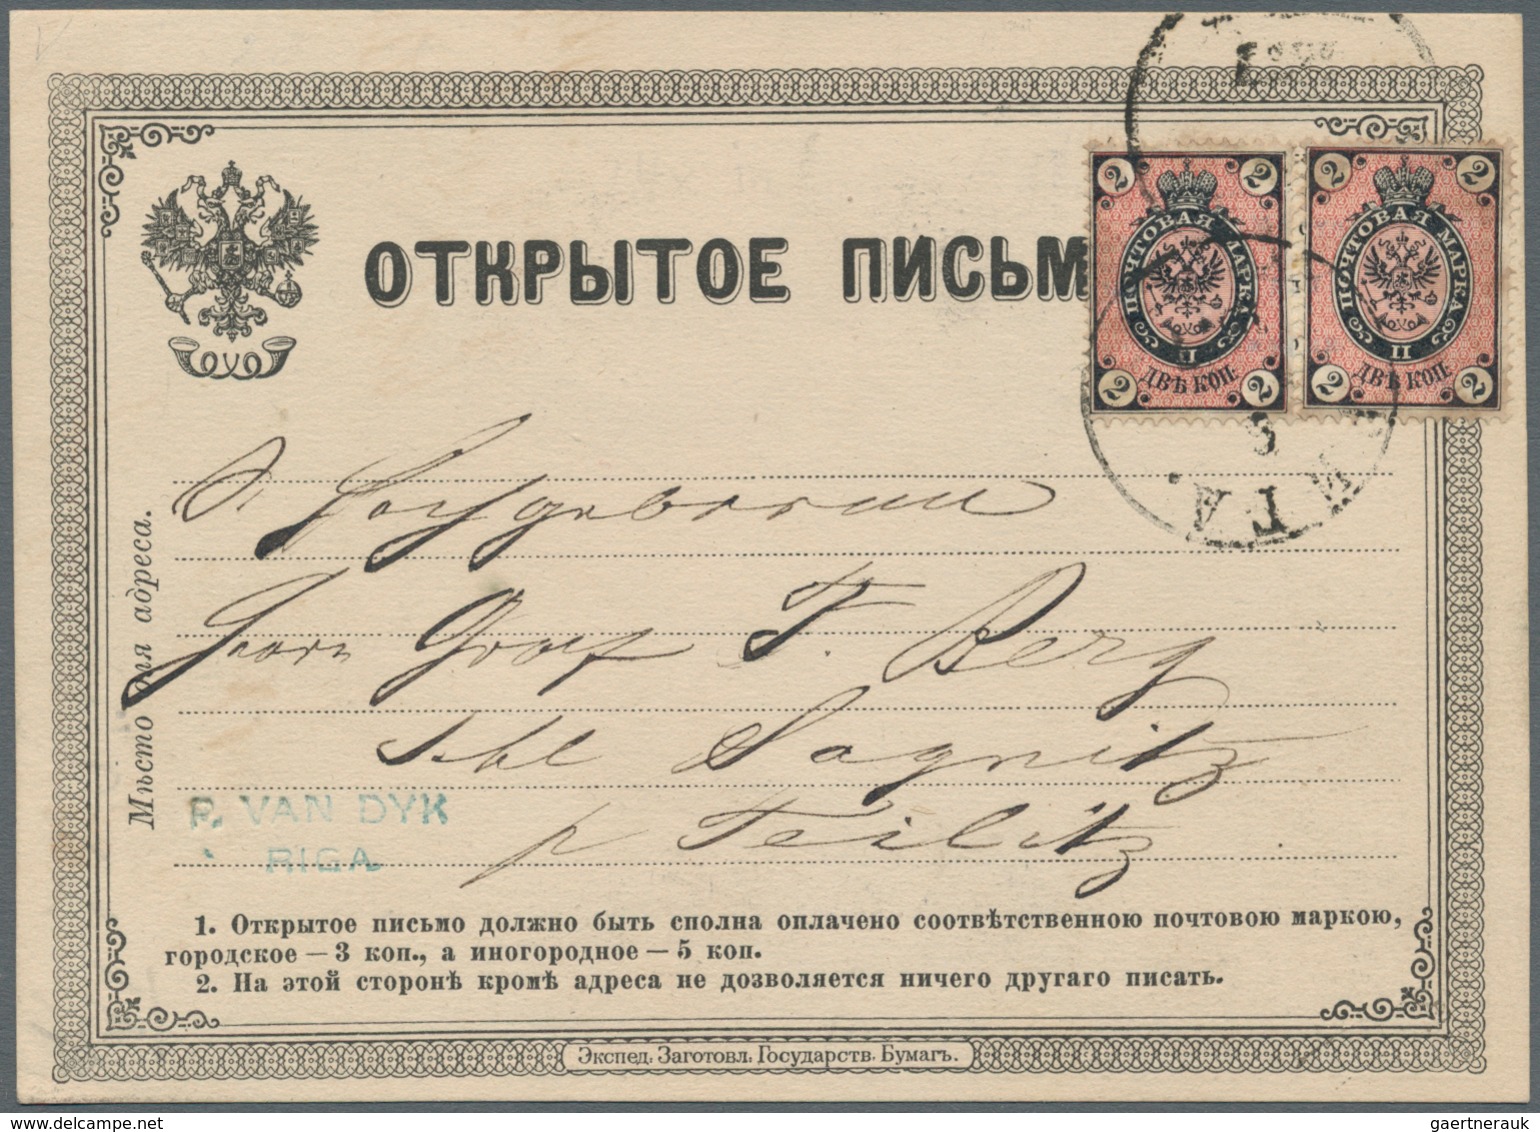 ОТКРЫТОЕ ПИСЬМ
2 2 2 2
ПОЧТОВАЯ МАРКА
II
ДВѢ КОП.
2 2 2 2
ПОЧТОВАЯ МАРКА
II
ДВѢ КОП.
8
РИГА.
Мѣсто для адреса.
S. Hochgeboren
Herrn Graf F. Berg
Schl Sagnitz
p Teilitz
P. VAN DYK
RIGA
1. Открытое письмо должно быть сполна оплачено соотвѣтственною почтовою маркою,
городское — 3 коп., а иногородное — 5 коп.
2. На этой сторонѣ кромѣ адреса не дозволяется ничего другаго писать.
Экспед. Заготовл. Государств. Бумагъ.
gaertnerauk @ delcampe.net